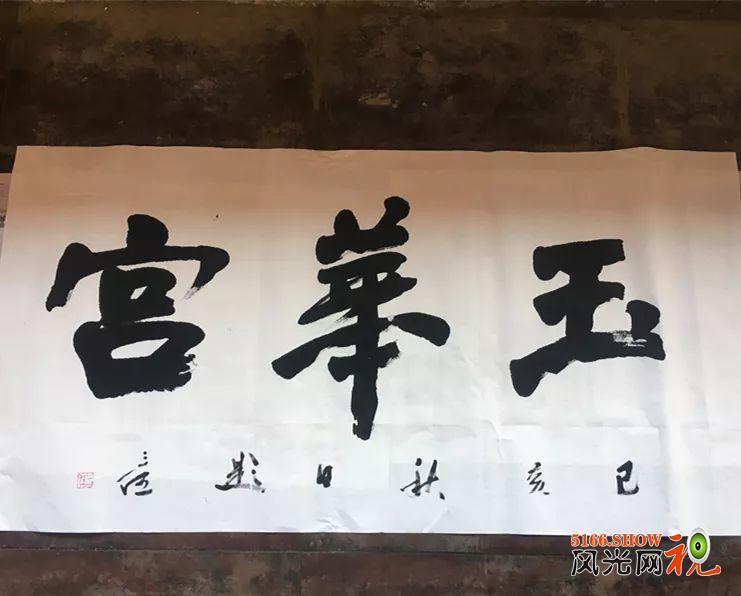 玉華宮
己亥秋日題
5166.SHOW
风光网视